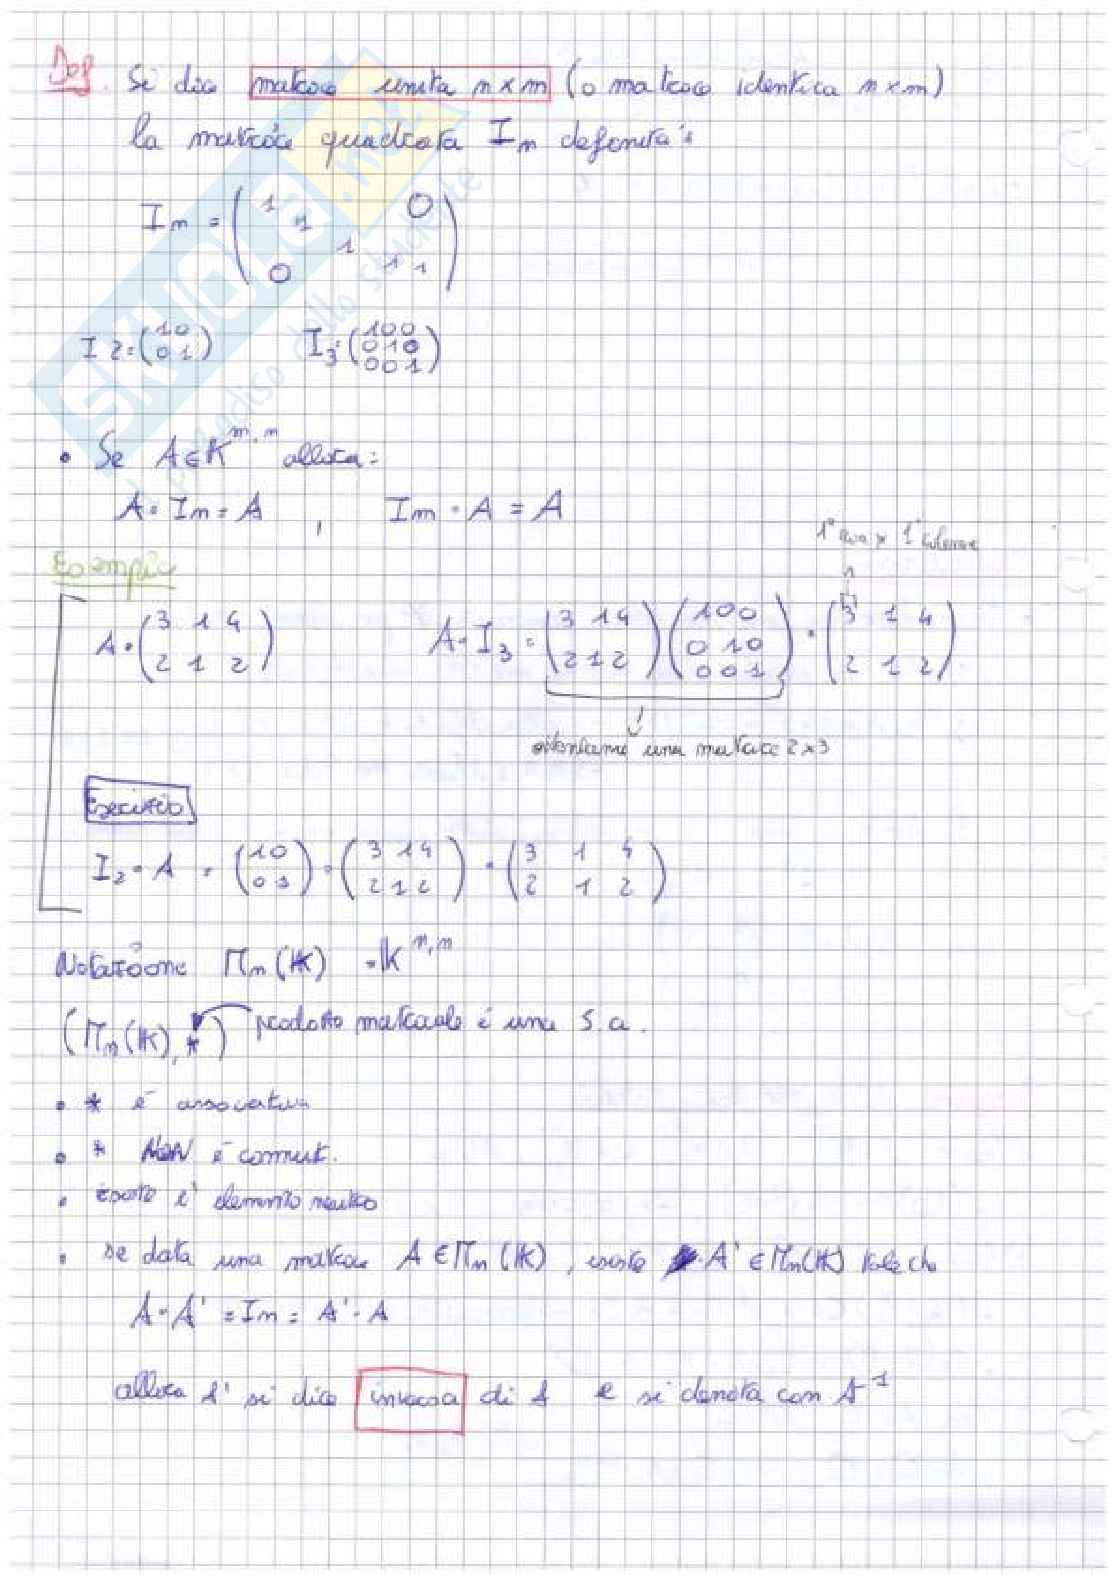 Def. Si dice matrice unità n x n (o matrice identica n x n)
la matrice quadrata In definita:
In = ( 1 1 1 1 1 0 0 )
I2 = (1 0
0 1)
I3 = (1 0 0
0 1 0
0 0 1)
• Se A ∈ K^m,n allora:
A · In = A , Im · A = A
1ª riga x 1ª colonna
Esempio
A = (3 1 4
2 1 2)
A · I3 = (3 1 4
2 1 2) (1 0 0
0 1 0
0 0 1) = (3 1 4
2 1 2)
otteniamo una matrice 2x3
Esercizio
I2 · A = (1 0
0 1) · (3 1 4
2 1 2) = (3 1 4
2 1 2)
Notazione Mn(K) = K^n,n
(Mn(K), *) prodotto matriciale è una S.a.
• * è associativa
• * NON è commut.
• esiste l' elemento neutro
• se data una matrice A ∈ Mn(K), esiste A' ∈ Mn(K) tale che
A · A' = In = A' · A
allora A' si dice inversa di A e si denota con A^-1
SKUOLA.net
il paradiso dello studente